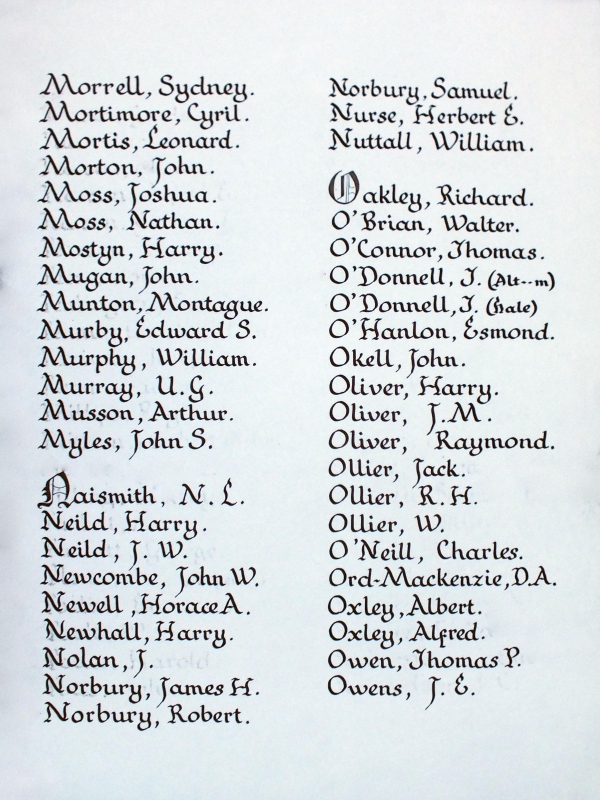 Morrell, Sydney.
Mortimore, Cyril.
Mortis, Leonard.
Morton, John.
Moss, Joshua.
Moss, Nathan.
Mostyn, Harry.
Mugan, John.
Munton, Montague.
Murby, Edward S.
Murphy, William.
Murray, U.G.
Musson, Arthur.
Myles, John S.
Naismith, N. L.
Neild, Harry.
Neild, J. W.
Newcombe, John W.
Newell, Horace A.
Newhall, Harry.
Nolan, J.
Norbury, James H.
Norbury, Robert.
Norbury, Samuel.
Nurse, Herbert E.
Nuttall, William.
Oakley, Richard.
O'Brian, Walter.
O'Connor, Thomas.
O'Donnell, T. (Alt--m)
O'Donnell, T. (Hale)
O'Hanlon, Esmond.
Okell, John.
Oliver, Harry.
Oliver, J.M.
Oliver, Raymond.
Ollier, Jack.
Ollier, R.H.
Ollier, W.
O'Neill, Charles.
Ord-Mackenzie, D.A.
Oxley, Albert.
Oxley, Alfred.
Owen, Thomas P.
Owens, J. E.